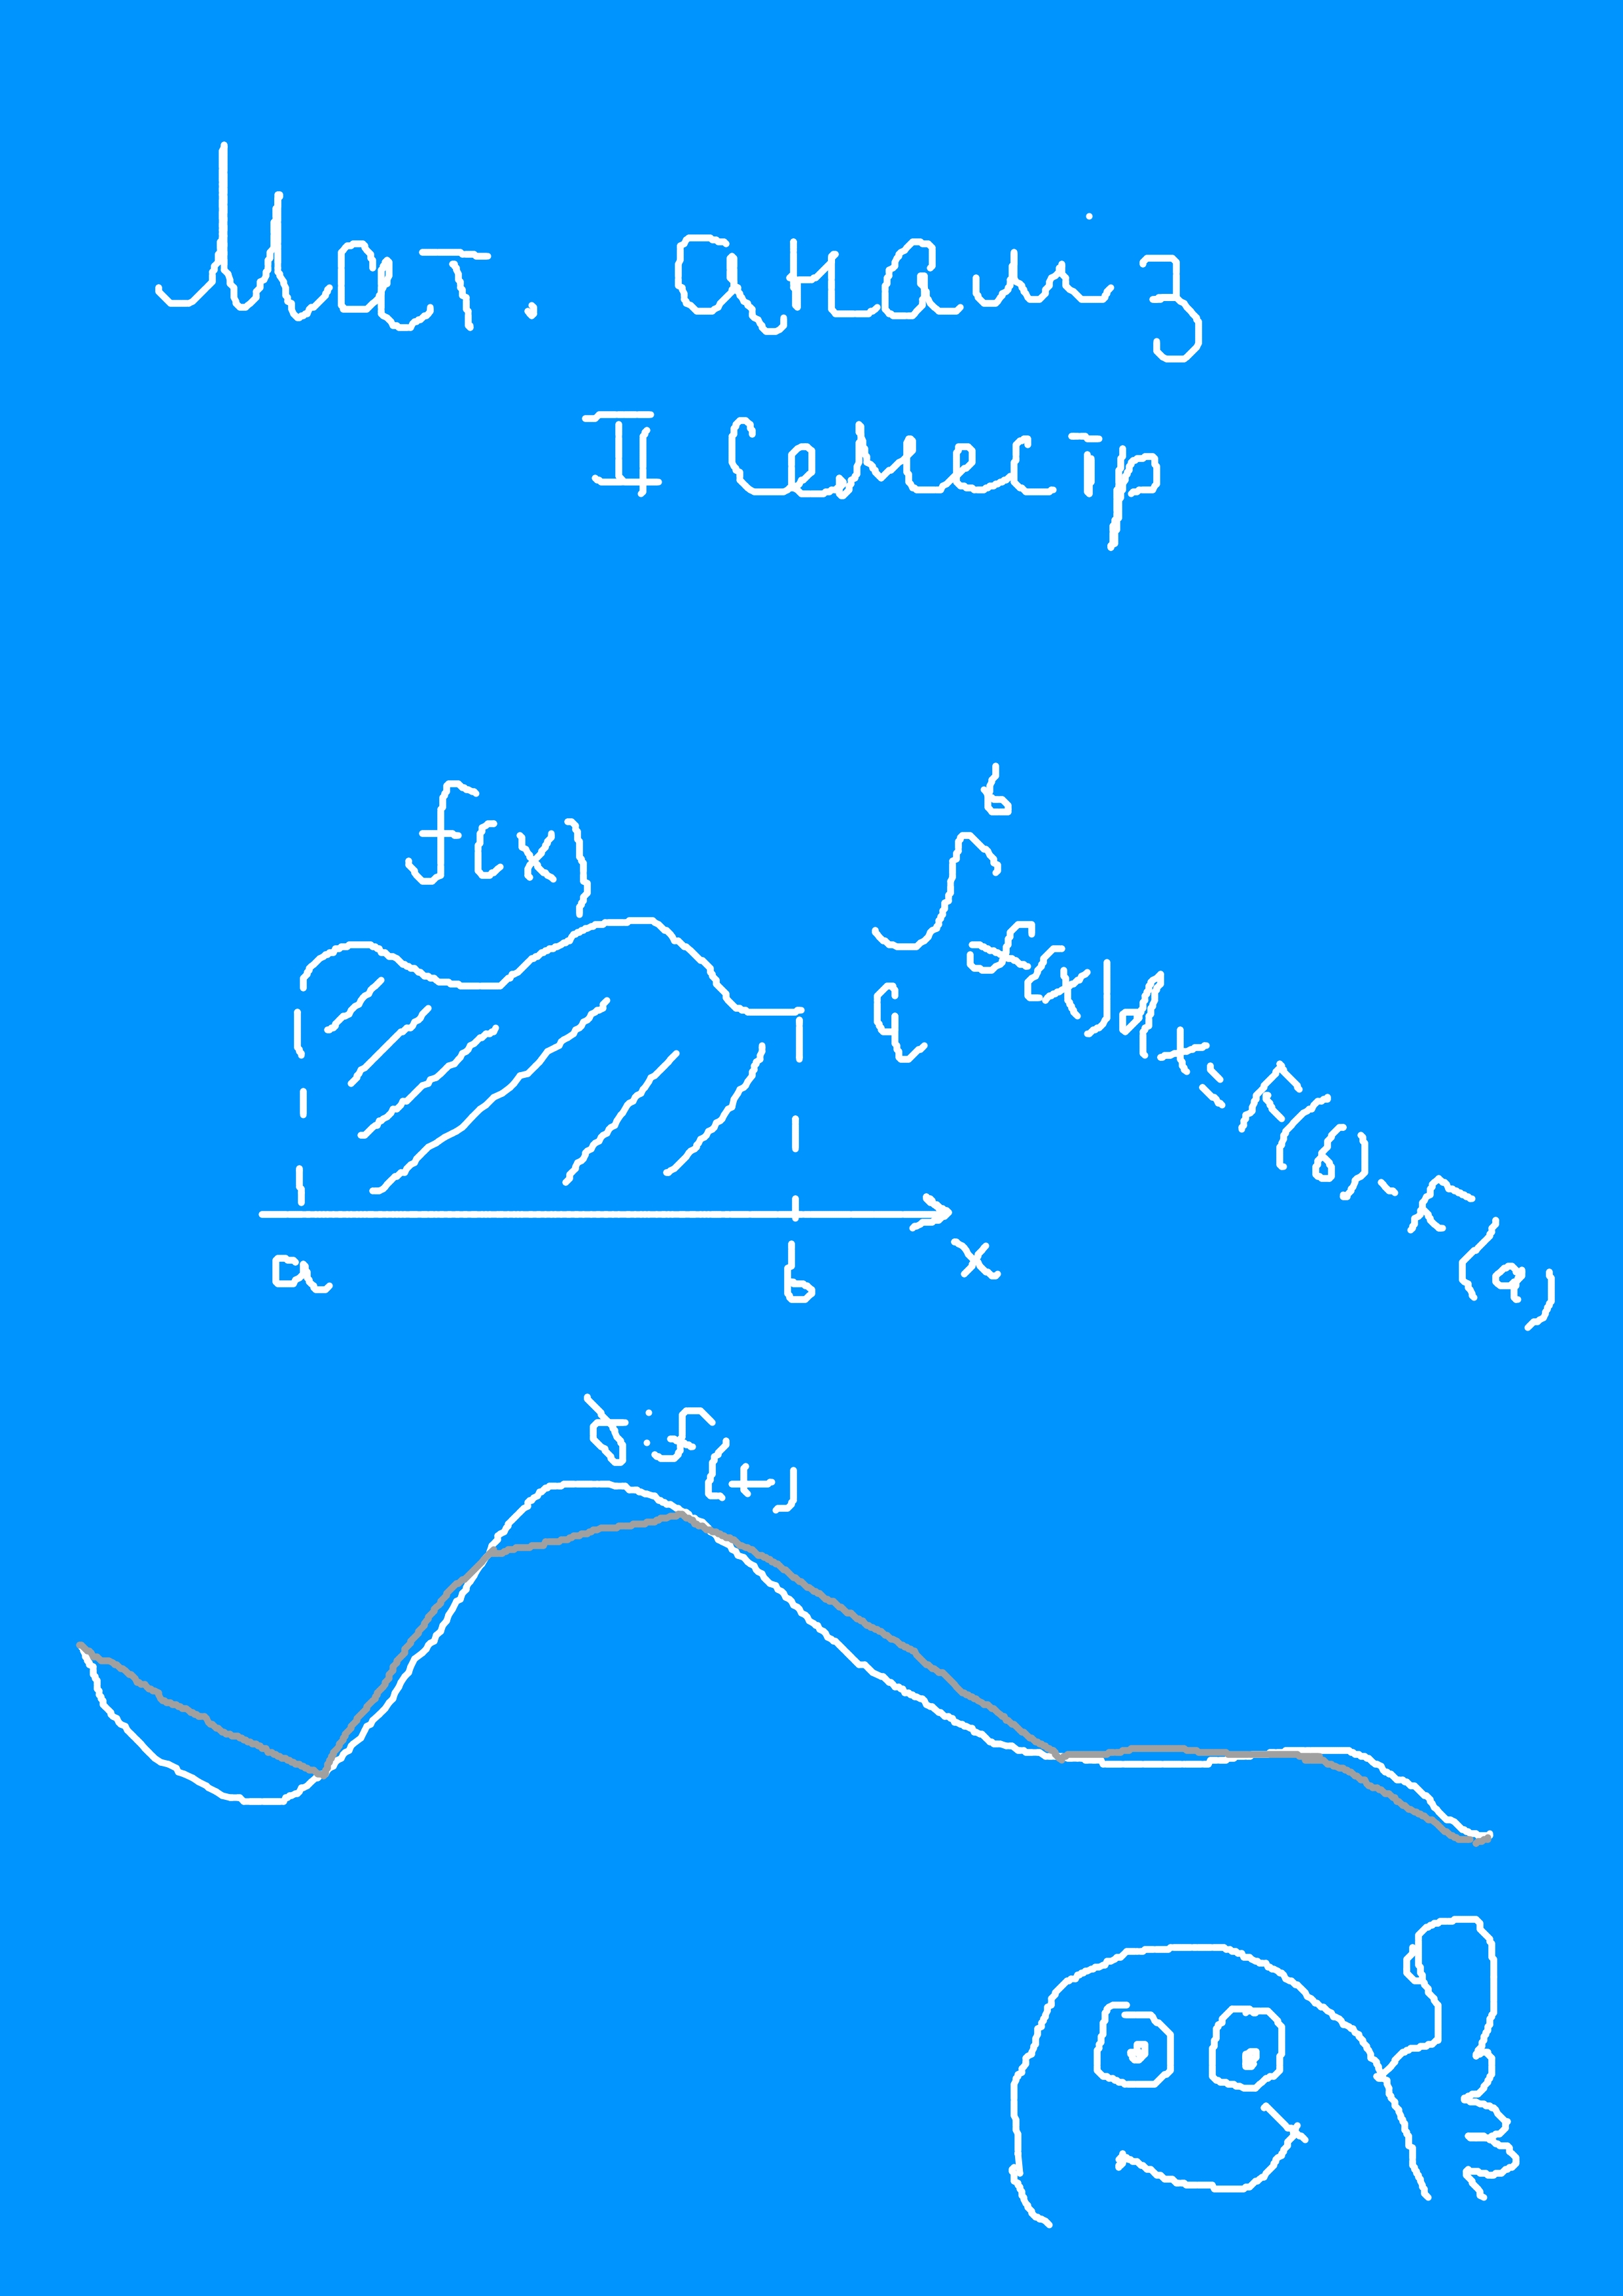 Мат. анализ
II Семестр
f(x)
∫ₐᵇ f(x)dx = F(b) - F(a)
a b x
γ: f(t)